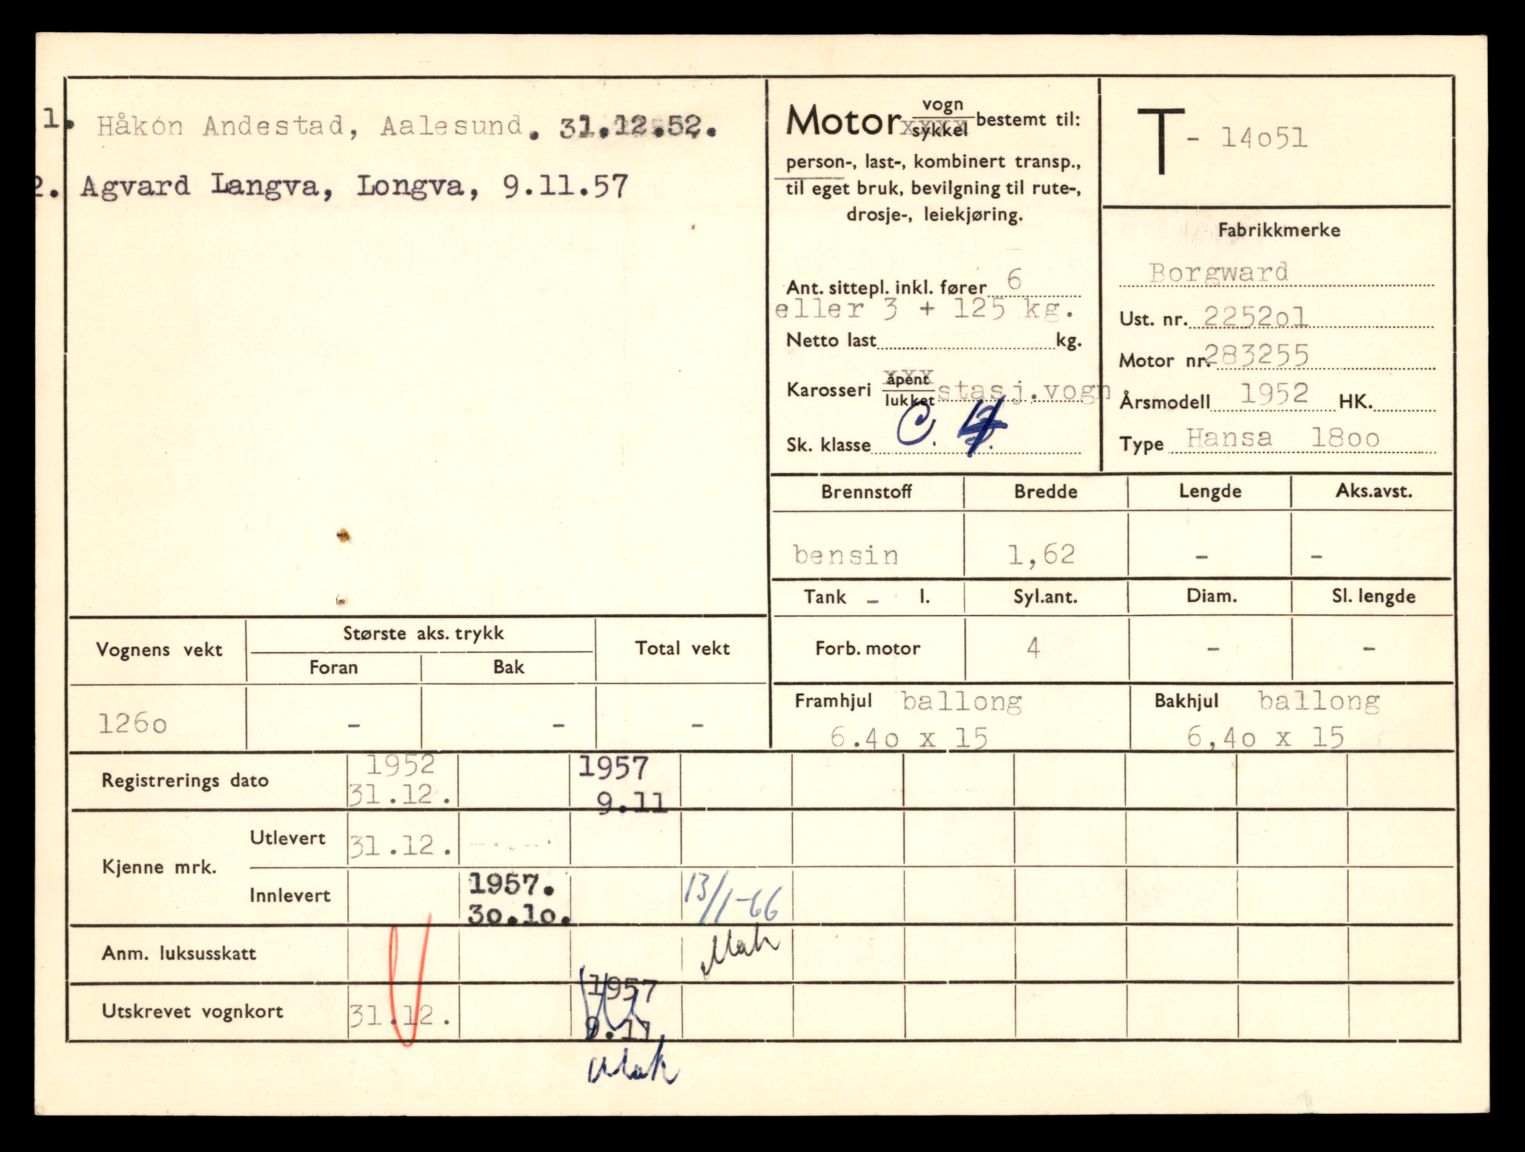 1. Håkon Andestad, Aalesund. 31.12.52.
2. Agvard Langva, Longva, 9.11.57
Motor vogn
sykkel bestemt til:
person-, last-, kombinert transp.,
til eget bruk, bevilgning til rute-,
drosje-, leiekjøring.
Ant. sittepl. inkl. fører 6
eller 3 + 125 kg.
Netto last kg.
Karosseri åpent
lukket stasj.vogn
Sk. klasse C. 4
T - 14o51
Fabrikkmerke
Borgward
Ust. nr. 2252o1
Motor nr. 283255
Årsmodell 1952 HK.
Type Hansa 18oo
Brennstoff Bredde Lengde Aks.avst.
bensin 1,62 - -
Tank - l. Syl.ant. Diam. Sl. lengde
Forb. motor 4 - -
Framhjul ballong Bakhjul ballong
6.4o x 15 6,4o x 15
Vognens vekt Største aks. trykk Total vekt
Foran Bak
126o - - -
Registrerings dato 1952 1957
31.12. 9.11
Kjenne mrk. Utlevert 31.12.
Innlevert 1957. 13/1-66
3o.1o.
Anm. luksusskatt
1957
Utskrevet vognkort 31.12. 9.11